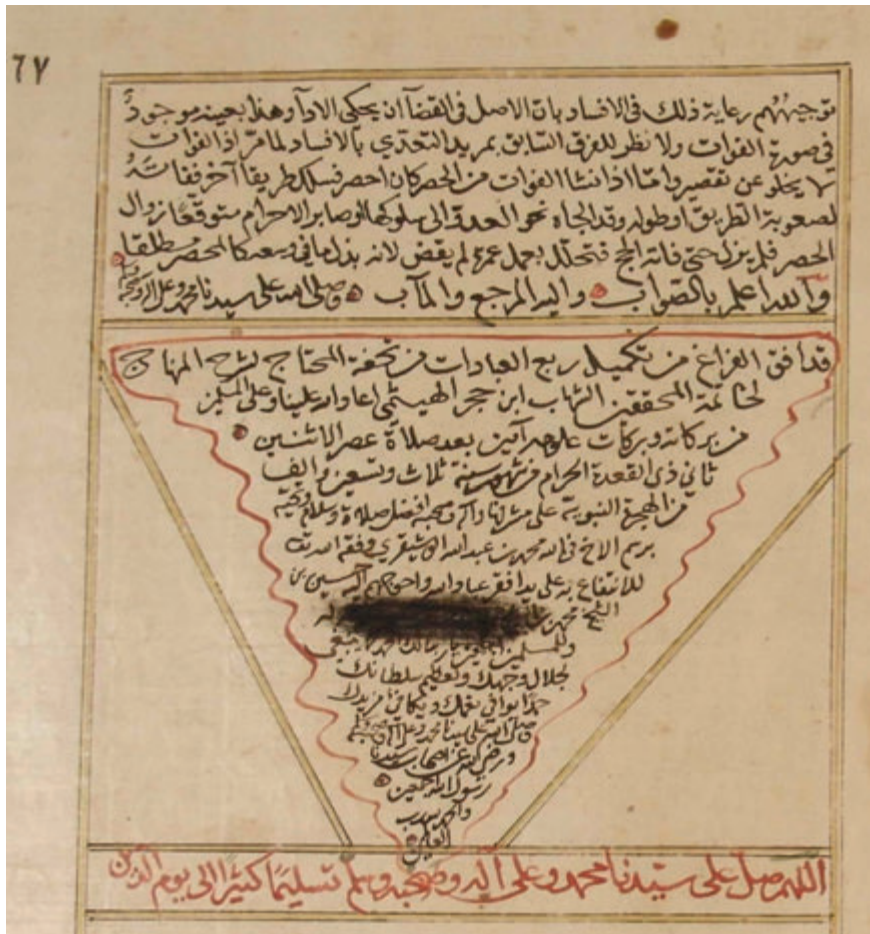 ٦٧
توجيههم رعاية ذلك في الافساد بان الاصل في القضآ ان يحكي الادآ وهذا بعينه موجود
في صورة الفوات ولا نظر للفرق السابق بمزيد التعدي بالافساد لما مر اذ الفوات
لا يخلو عن تقصير وامّا اذا نشا الفوات من الحصر كان احصر فسلك طريقا آخر ففاته
لصعوبة الطريق او طوله وقد الجاه نحو العدو الى سلوكها او صابر الاحرام متوقعًا زوال
الحصر فلم يزل حتى فاته الحج فتحلل بعمل عمرة لم يقض لانه بذل ما في وسعه كالمحصر مطلقا
والله اعلم بالصواب واليه المرجع والمآب وصلى الله على سيدنا محمد وعلى اله وصحبه وسلم
قد افق الفراغ من تكميل ربع العبادات من تحفة المحتاج لشرح المنهاج
لخاتمة المحققين الشهاب ابن حجر الهيتمي اعاد الله علينا وعلى المسلمين
من بركاته وبركات علومه آمين بعد صلاة عصر الاثنين
ثاني ذي القعدة الحرام من شهور سنة ثلاث وتسعين والف
من الهجرة النبوية على مشرفها وآله وصحبه افضل صلاة وسلام وتحية
برسم الاخ في الله محمد بن عبد الله وفقه الله تعالى
للانتفاع به على يد افقر عباد الله واحوجهم اليه حسين بن
الشيخ محمد
وللمسلمين يا ربنا لك الحمد كما ينبغي
لجلال وجهك ولعظيم سلطانك
حمدا يوافي نعمك ويكافئ مزيدك
وصلى الله على سيدنا محمد وعلى آله وصحبه وسلم
ورضي الله عن اصحاب سيدنا
رسول الله اجمعين
والحمد لله رب
العالمين
اللهم صل على سيدنا محمد وعلى آله وصحبه وسلم تسليمًا كثيرا الى يوم الدين